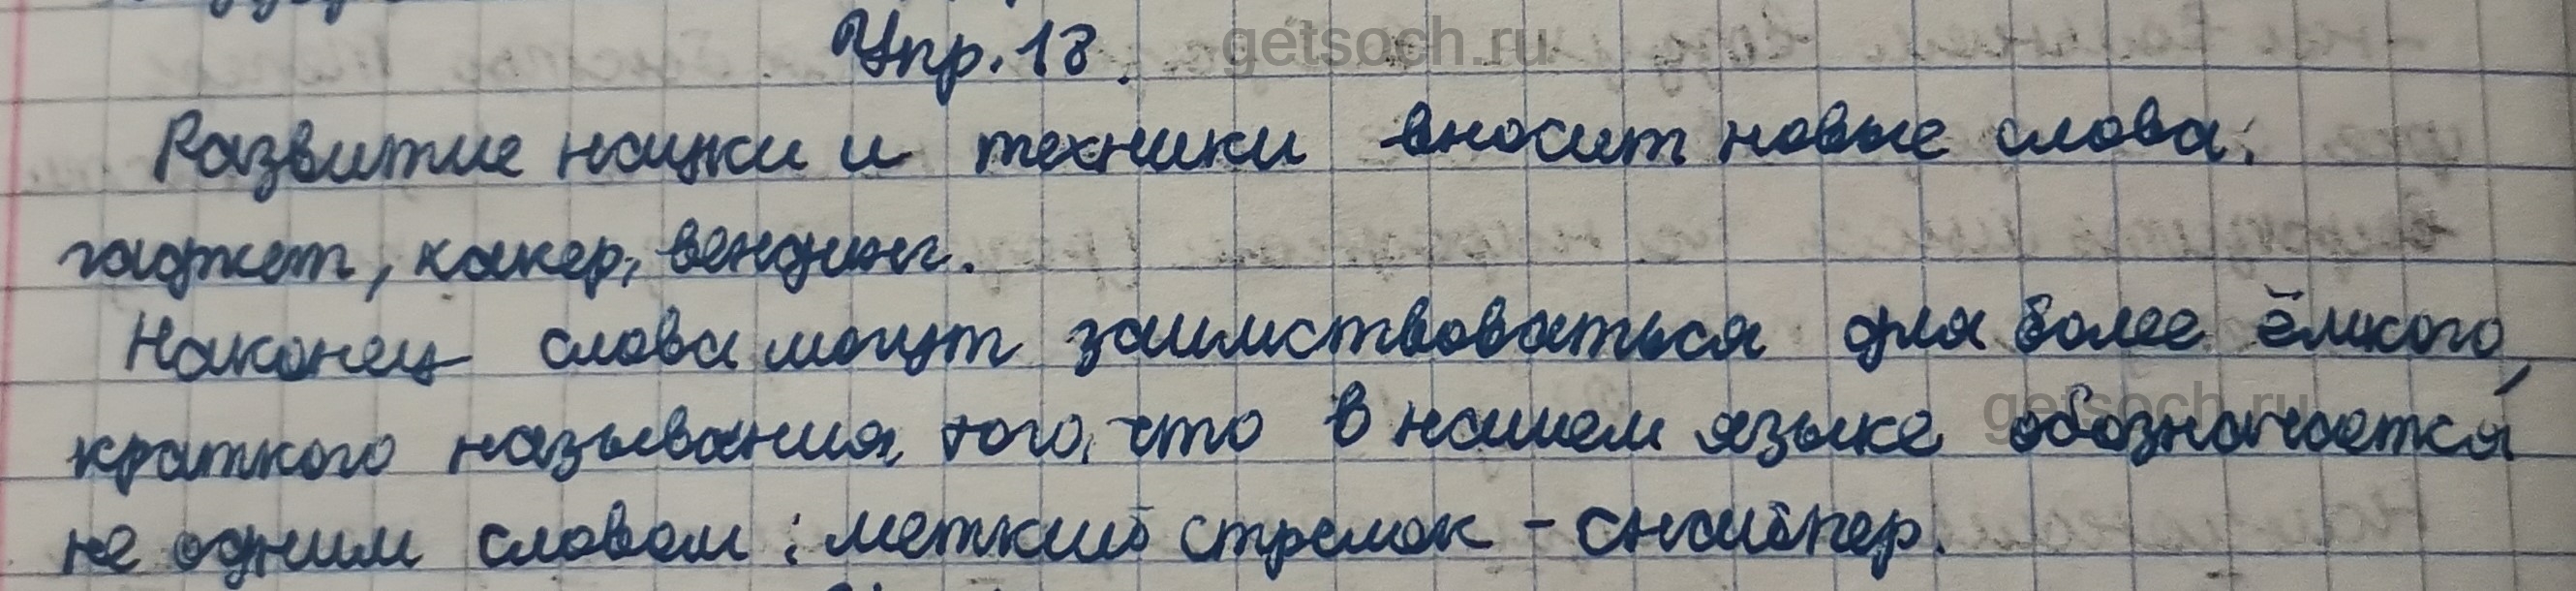 Упр. 18.
getsoch.ru
Развитие науки и техники вносит новые слова:
гаджет, хакер, вендинг.
Наконец слова могут заимствоваться для более ёмкого,
краткого называния того, что в нашем языке обозначается
getsoch.ru
не одним словом: меткий стрелок - снайпер.